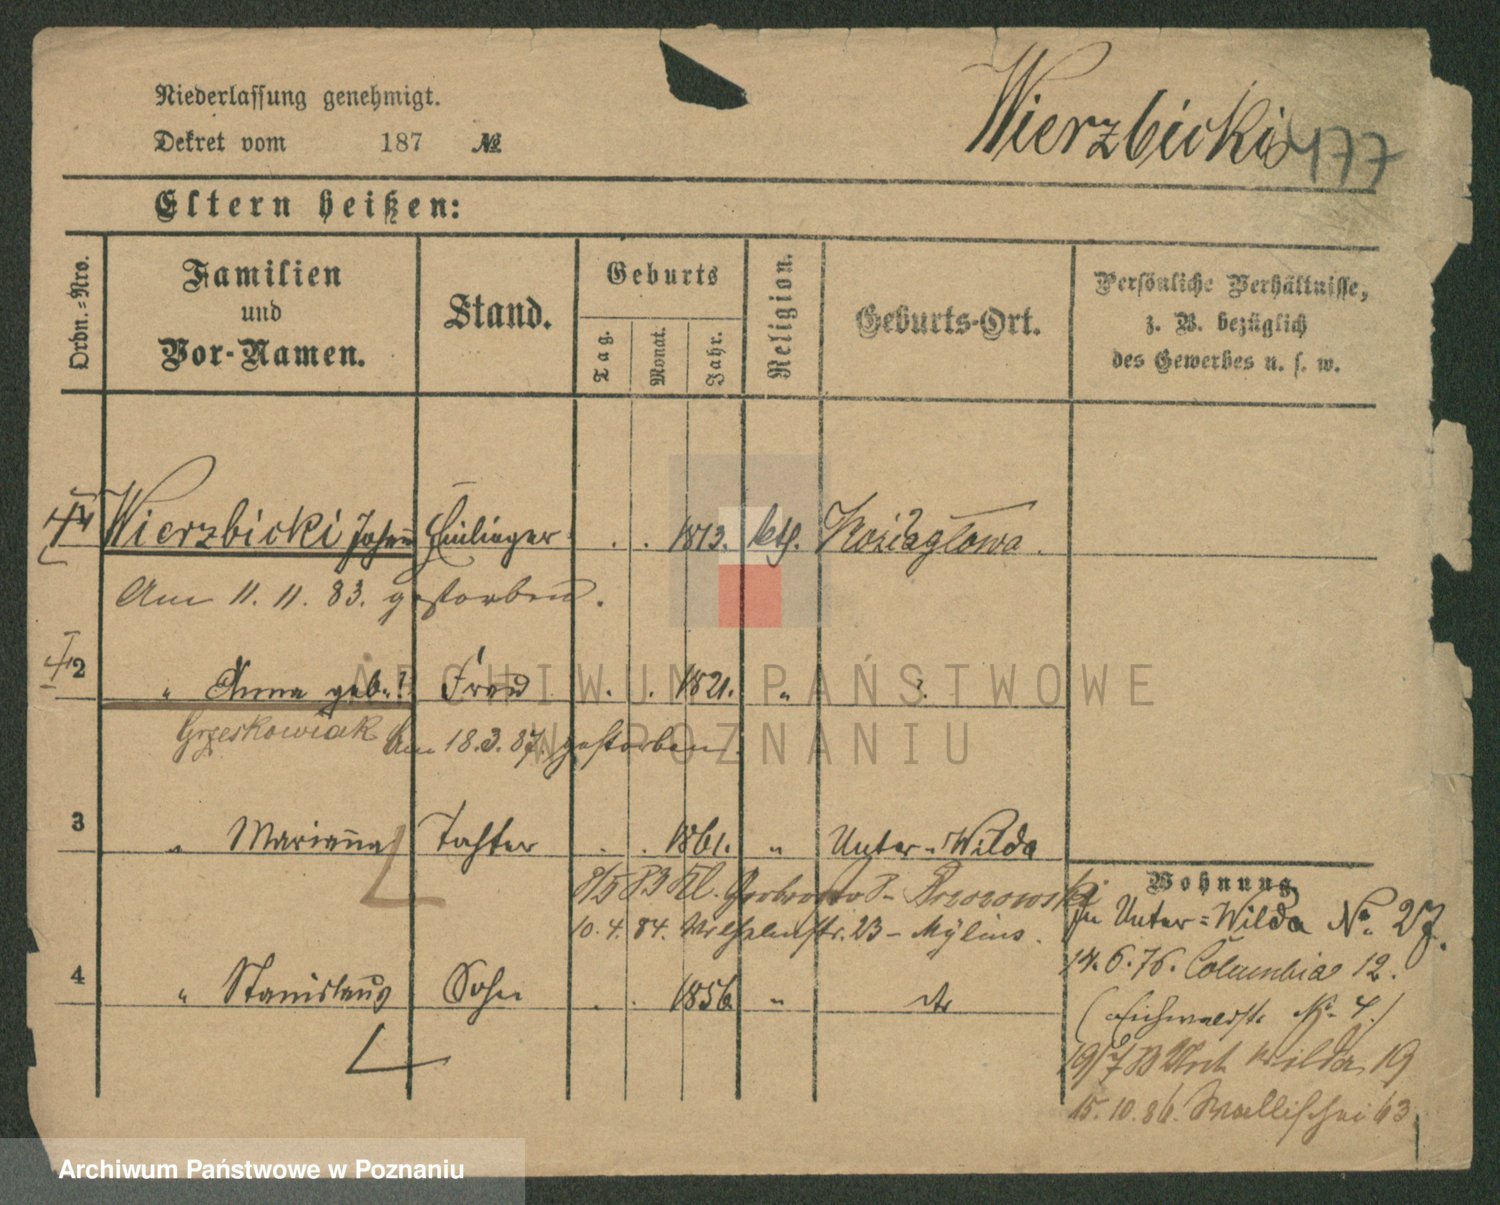 Niederlassung genehmigt.
Dekret vom 187 №
Wierzbicki
477
Eltern heißen:
Ordn.-Nro.
Familien
und
Vor-Namen.
Stand.
Geburts
Tag.
Monat.
Jahr.
Religion.
Geburts-Ort.
Persönliche Verhältnisse,
z. B. bezüglich
des Gewerbes u. s. w.
Wierzbicki Johann . . 1813. kth. Koziagłowa.
Am 11. 11. 83. gestorben.
2 " Anna geb. ? Frau . . 1821. "
Grzeskowiak Am 18.3.87. gestorben.
3 " Marianna Tochter . . 1861. " Unter-Wilda
Brzozowski
10. 4. 84. Wilhelmstr. 23 - Mylius.
4 " Stanislaus Sohn . . 1856 " dto
Wohnung
In Unter-Wilda No. 27.
14. 6. 76. Columbia 12.
(Eichwaldstr. No. 4.)
Wilda 19
15. 10. 86. Wallischei 63
ARCHIWUM PAŃSTWOWE
W POZNANIU
Archiwum Państwowe w Poznaniu